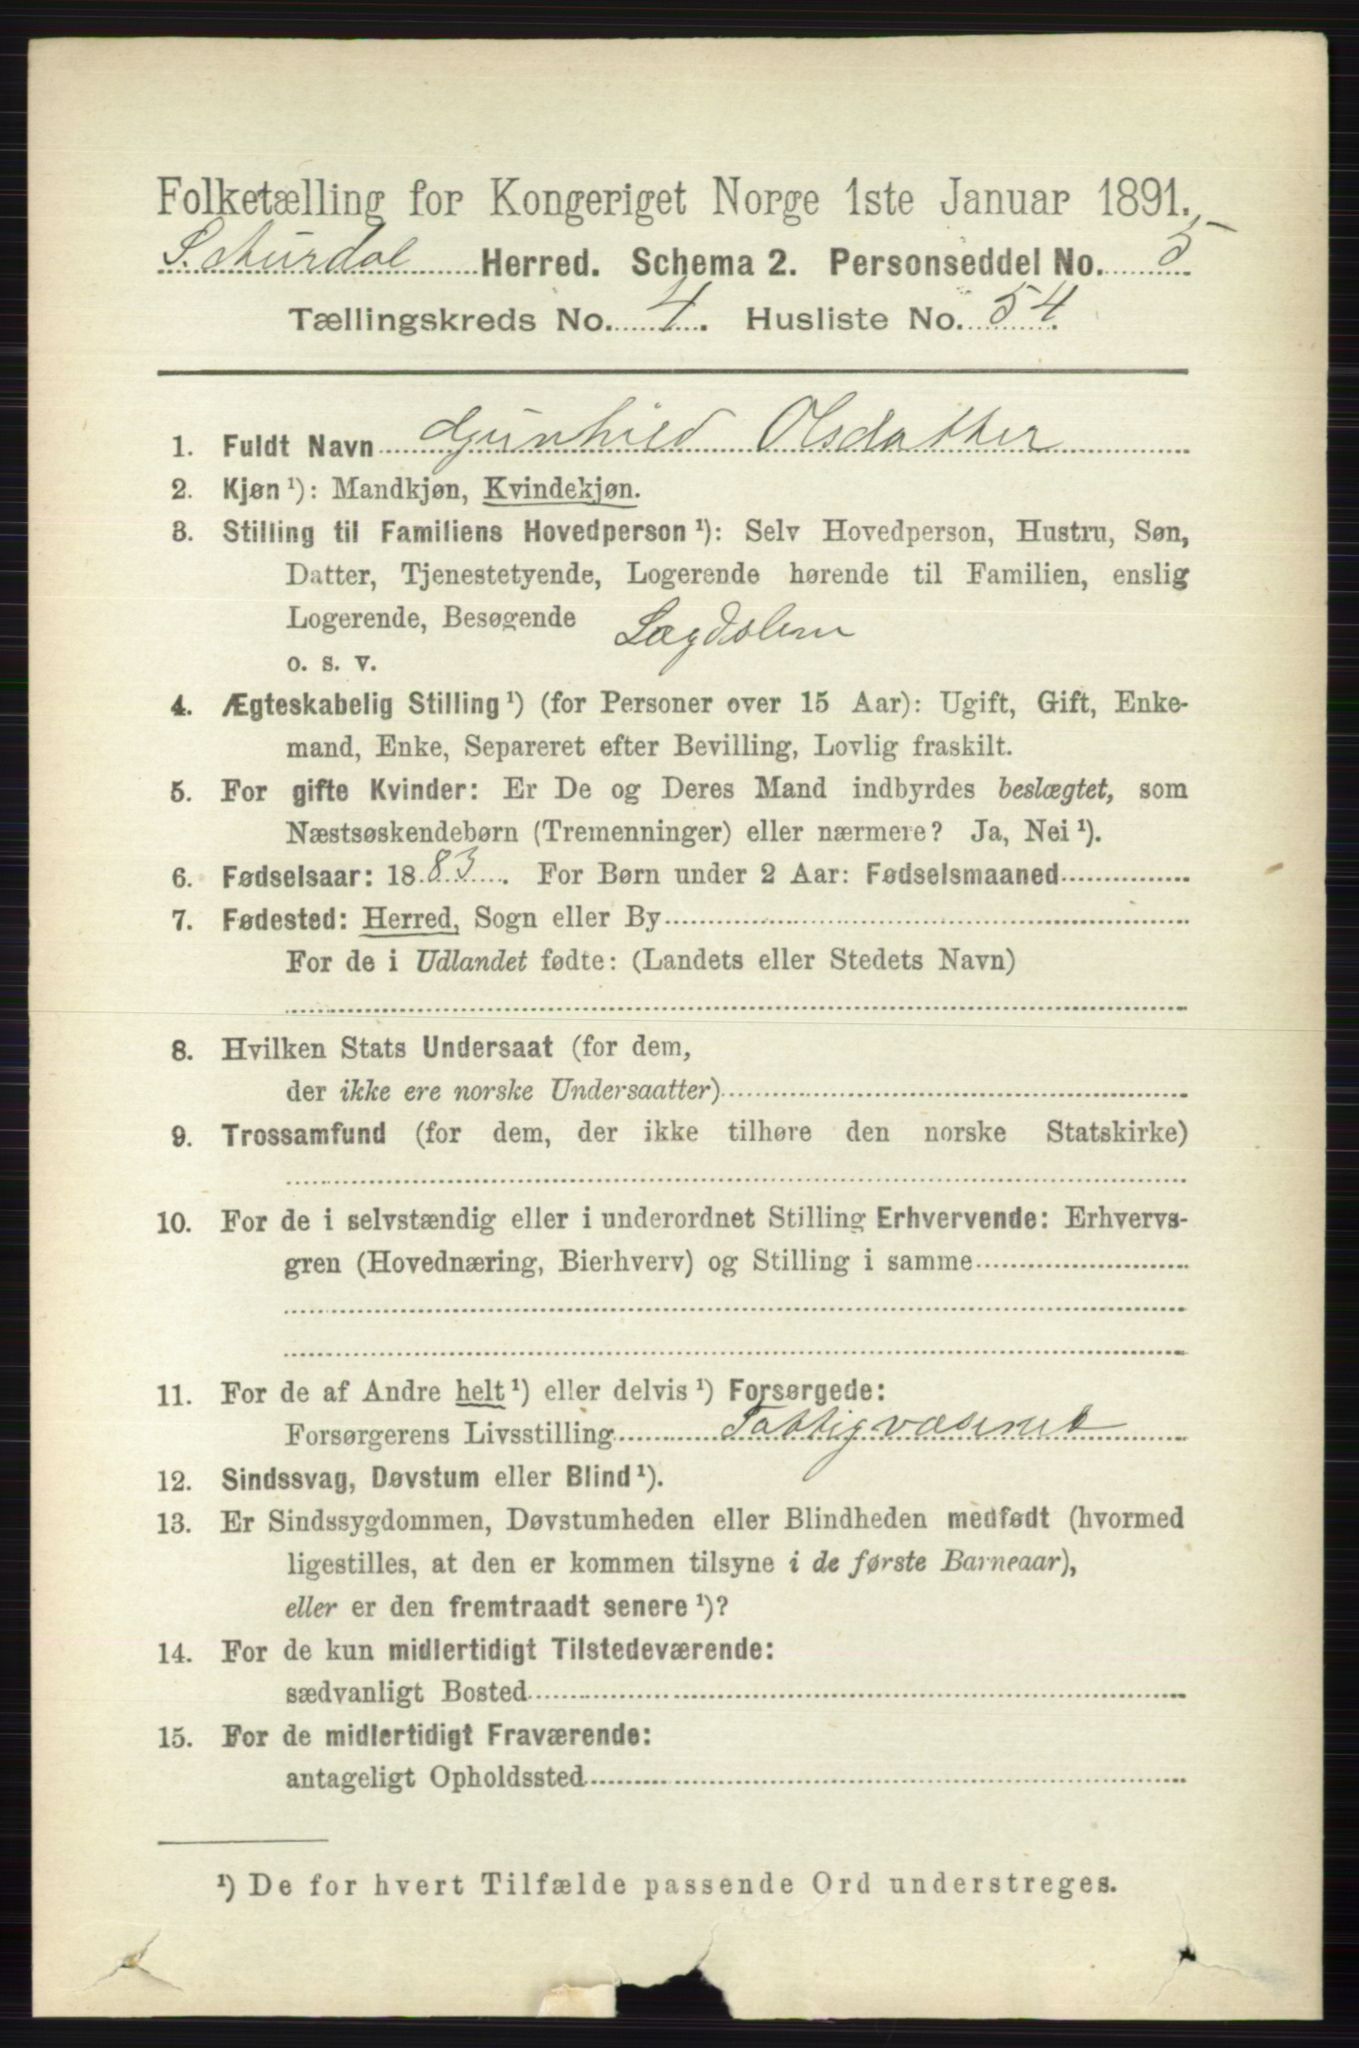 Folketælling for Kongeriget Norge 1ste Januar 1891.
S. Aurdal Herred. Schema 2. Personseddel No. 5
Tællingskreds No. 4. Husliste No. 54.
1. Fuldt Navn Gunhild Olsdatter
2. Kjøn¹): Mandkjøn, Kvindekjøn.
3. Stilling til Familiens Hovedperson¹): Selv Hovedperson, Hustru, Søn,
Datter, Tjenestetyende, Logerende hørende til Familien, enslig
Logerende, Besøgende Lægdslem
o. s. v.
4. Ægteskabelig Stilling¹) (for Personer over 15 Aar): Ugift, Gift, Enke-
mand, Enke, Separeret efter Bevilling, Lovlig fraskilt.
5. For gifte Kvinder: Er De og Deres Mand indbyrdes beslægtet, som
Næstsøskendebørn (Tremenninger) eller nærmere? Ja, Nei¹).
6. Fødselsaar: 1883. For Børn under 2 Aar: Fødselsmaaned
7. Fødested: Herred, Sogn eller By
For de i Udlandet fødte: (Landets eller Stedets Navn)
8. Hvilken Stats Undersaat (for dem,
der ikke ere norske Undersaatter)
9. Trossamfund (for dem, der ikke tilhøre den norske Statskirke)
10. For de i selvstændig eller i underordnet Stilling Erhvervende: Erhvervs-
gren (Hovednæring, Bierhverv) og Stilling i samme
11. For de af Andre helt¹) eller delvis¹) Forsørgede:
Forsørgerens Livsstilling Fattigvæsenet
12. Sindssvag, Døvstum eller Blind¹).
13. Er Sindssygdommen, Døvstumheden eller Blindheden medfødt (hvormed
ligestilles, at den er kommen tilsyne i de første Barneaar),
eller er den fremtraadt senere¹)?
14. For de kun midlertidigt Tilstedeværende:
sædvanligt Bosted
15. For de midlertidigt Fraværende:
antageligt Opholdssted
¹) De for hvert Tilfælde passende Ord understreges.